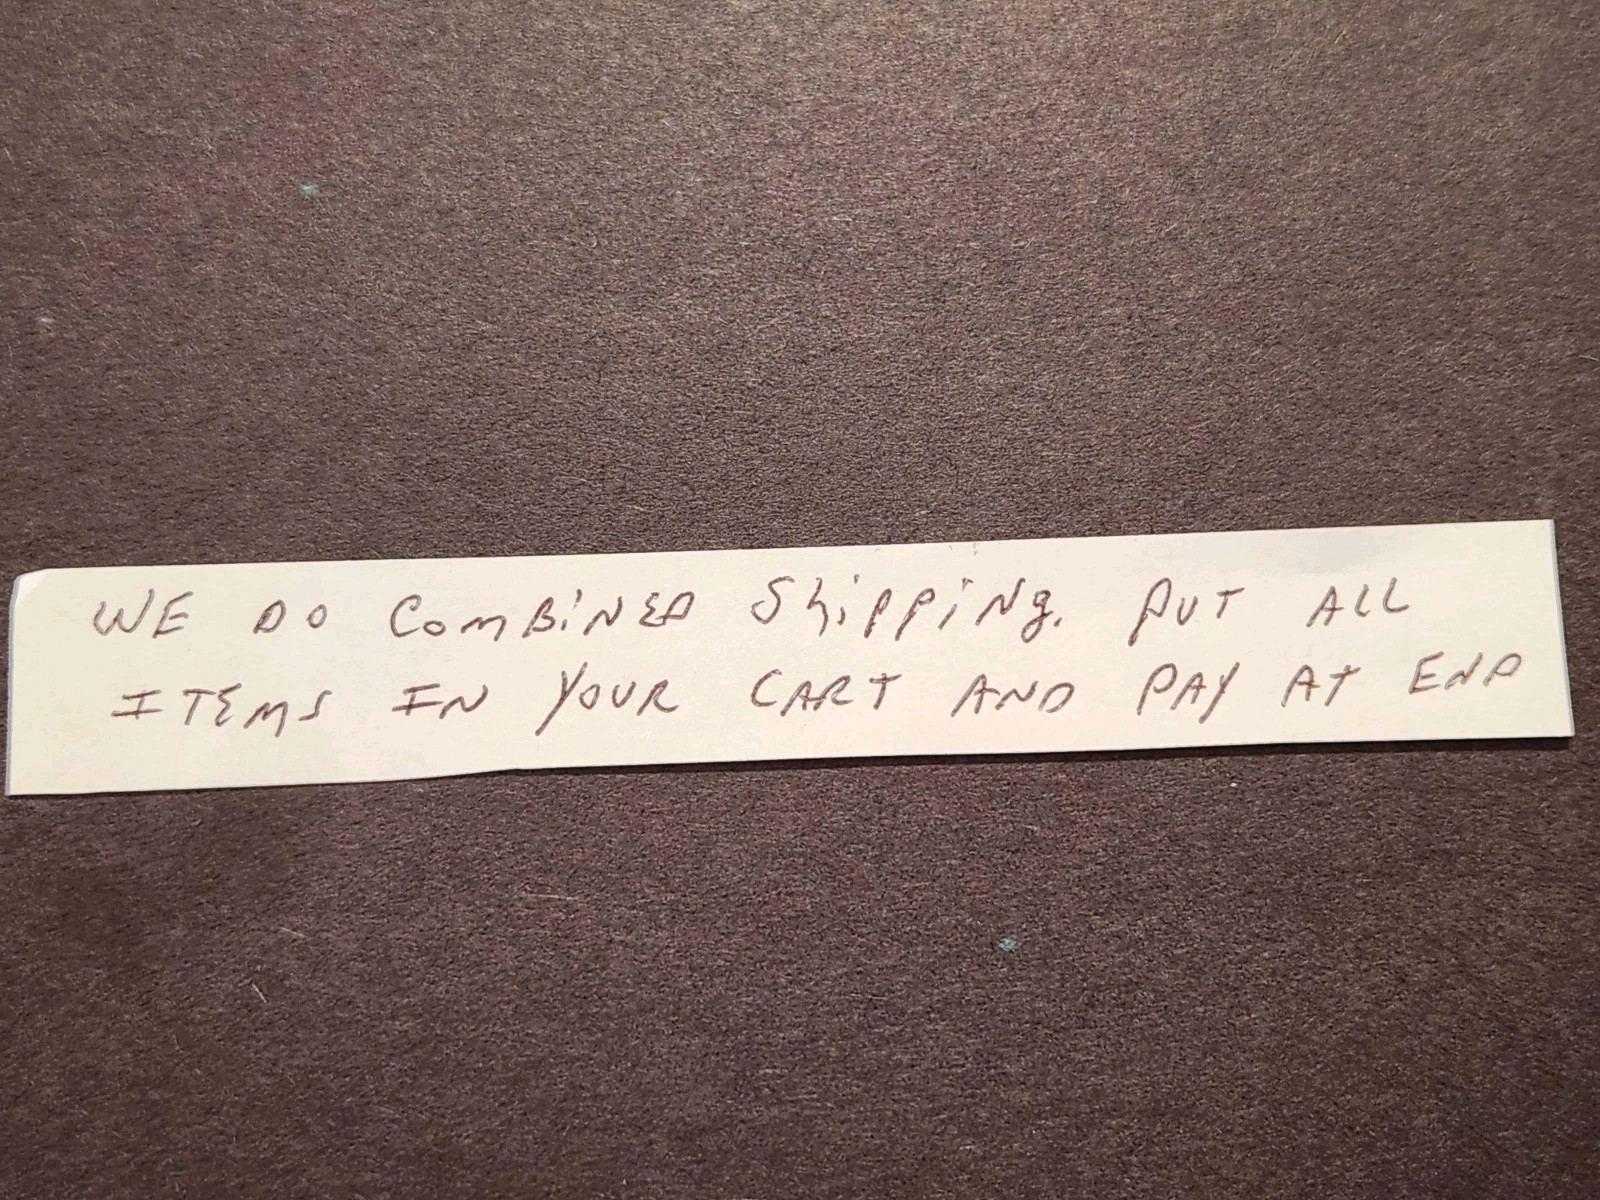 WE DO COMBINED Shipping. PUT ALL
ITEMS IN YOUR CART AND PAY AT END